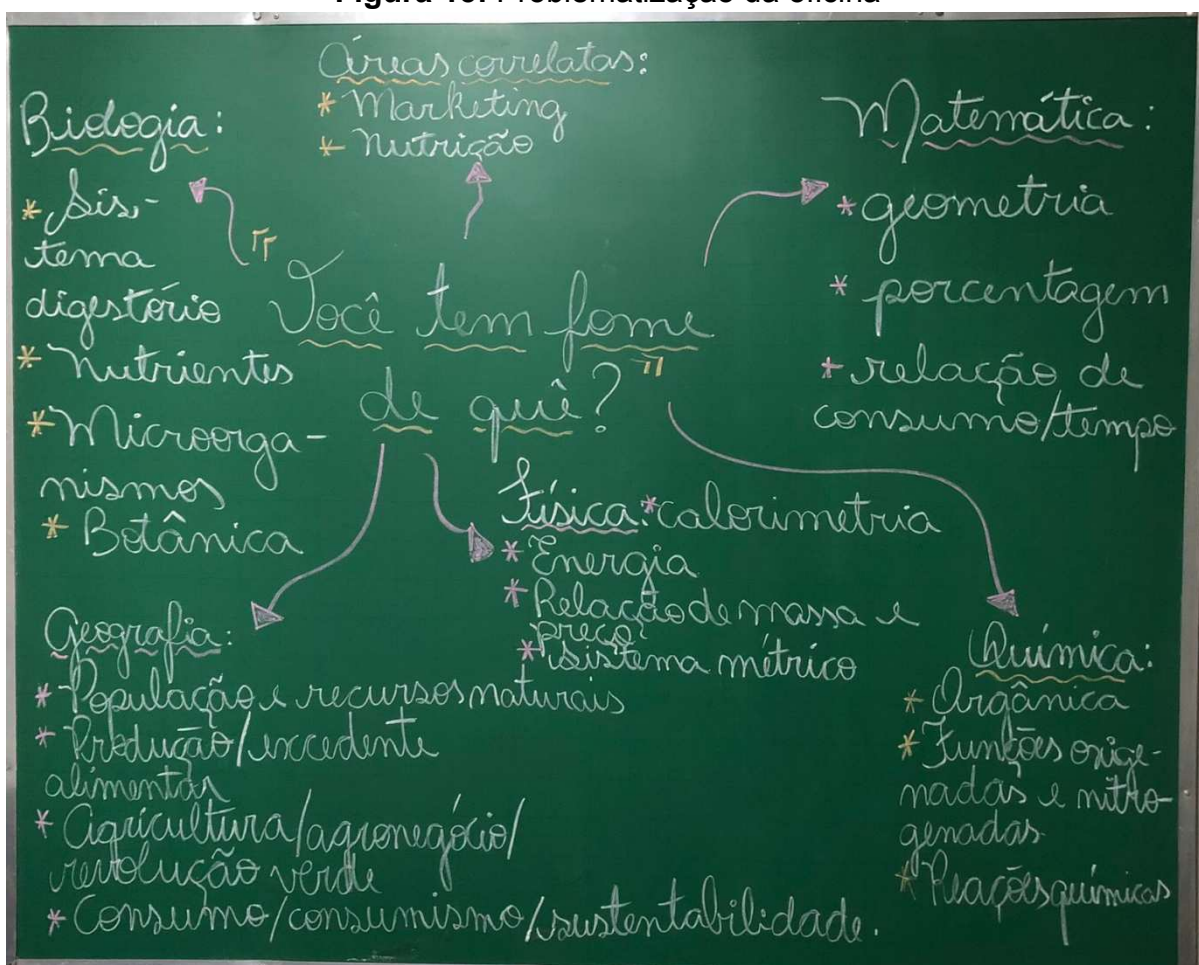 Áreas correlatas:
* Marketing
* Nutrição
Biologia:
* Sis-
tema
digestório
* Nutrientes
* Microorga-
nismos
* Botânica
Matemática:
* geometria
* porcentagem
* relação de
consumo/tempo
"Você tem fome
de quê?"
Física: * calorimetria
* Energia
* Relação de massa e
preço
* Sistema métrico
Geografia:
* População e recursos naturais
* Produção/excedente
alimentar
* Agricultura/agronegócio/
revolução verde
* Consumo/consumismo/sustentabilidade.
Química:
* Orgânica
* Funções oxige-
nadas e nitro-
genadas
* Reações químicas